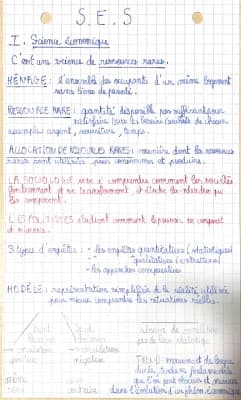 S.E.S
I. Science économique
C'est une science de ressources rares.
MÉNAGE : l'ensemble des occupants d'un même logement
sans liens de parenté.
RESSOURCE RARE : quantité disponible pas suffisante pour
satisfaire tous les besoins
exemples : argent, nourriture, temps.
ALLOCATION DE RESSOURCES RARES : manière dont les ressources
rares sont utilisées pour consommer et produire.
LA SOCIOLOGIE vise à comprendre comment les sociétés
fonctionnent et se transforment, et étudie les
qui les composent.
LES POLITISTES étudient comment le pouvoir se conquiert
et s'exerce.
3 types d'enquêtes : - les enquêtes quantitatives (statistiques)
- " qualitatives (entretiens)
- les approches comparatives
MODÈLE : représentation simplifiée de la réalité utilisée
pour mieux comprendre les situations réelles.
corrélation
positive négative
TREND : mouvement de longue
durée, tendance fondamentale
que l'on peut observer et mesurer
dans l'évolution d'un phénom. économique
même
contraire